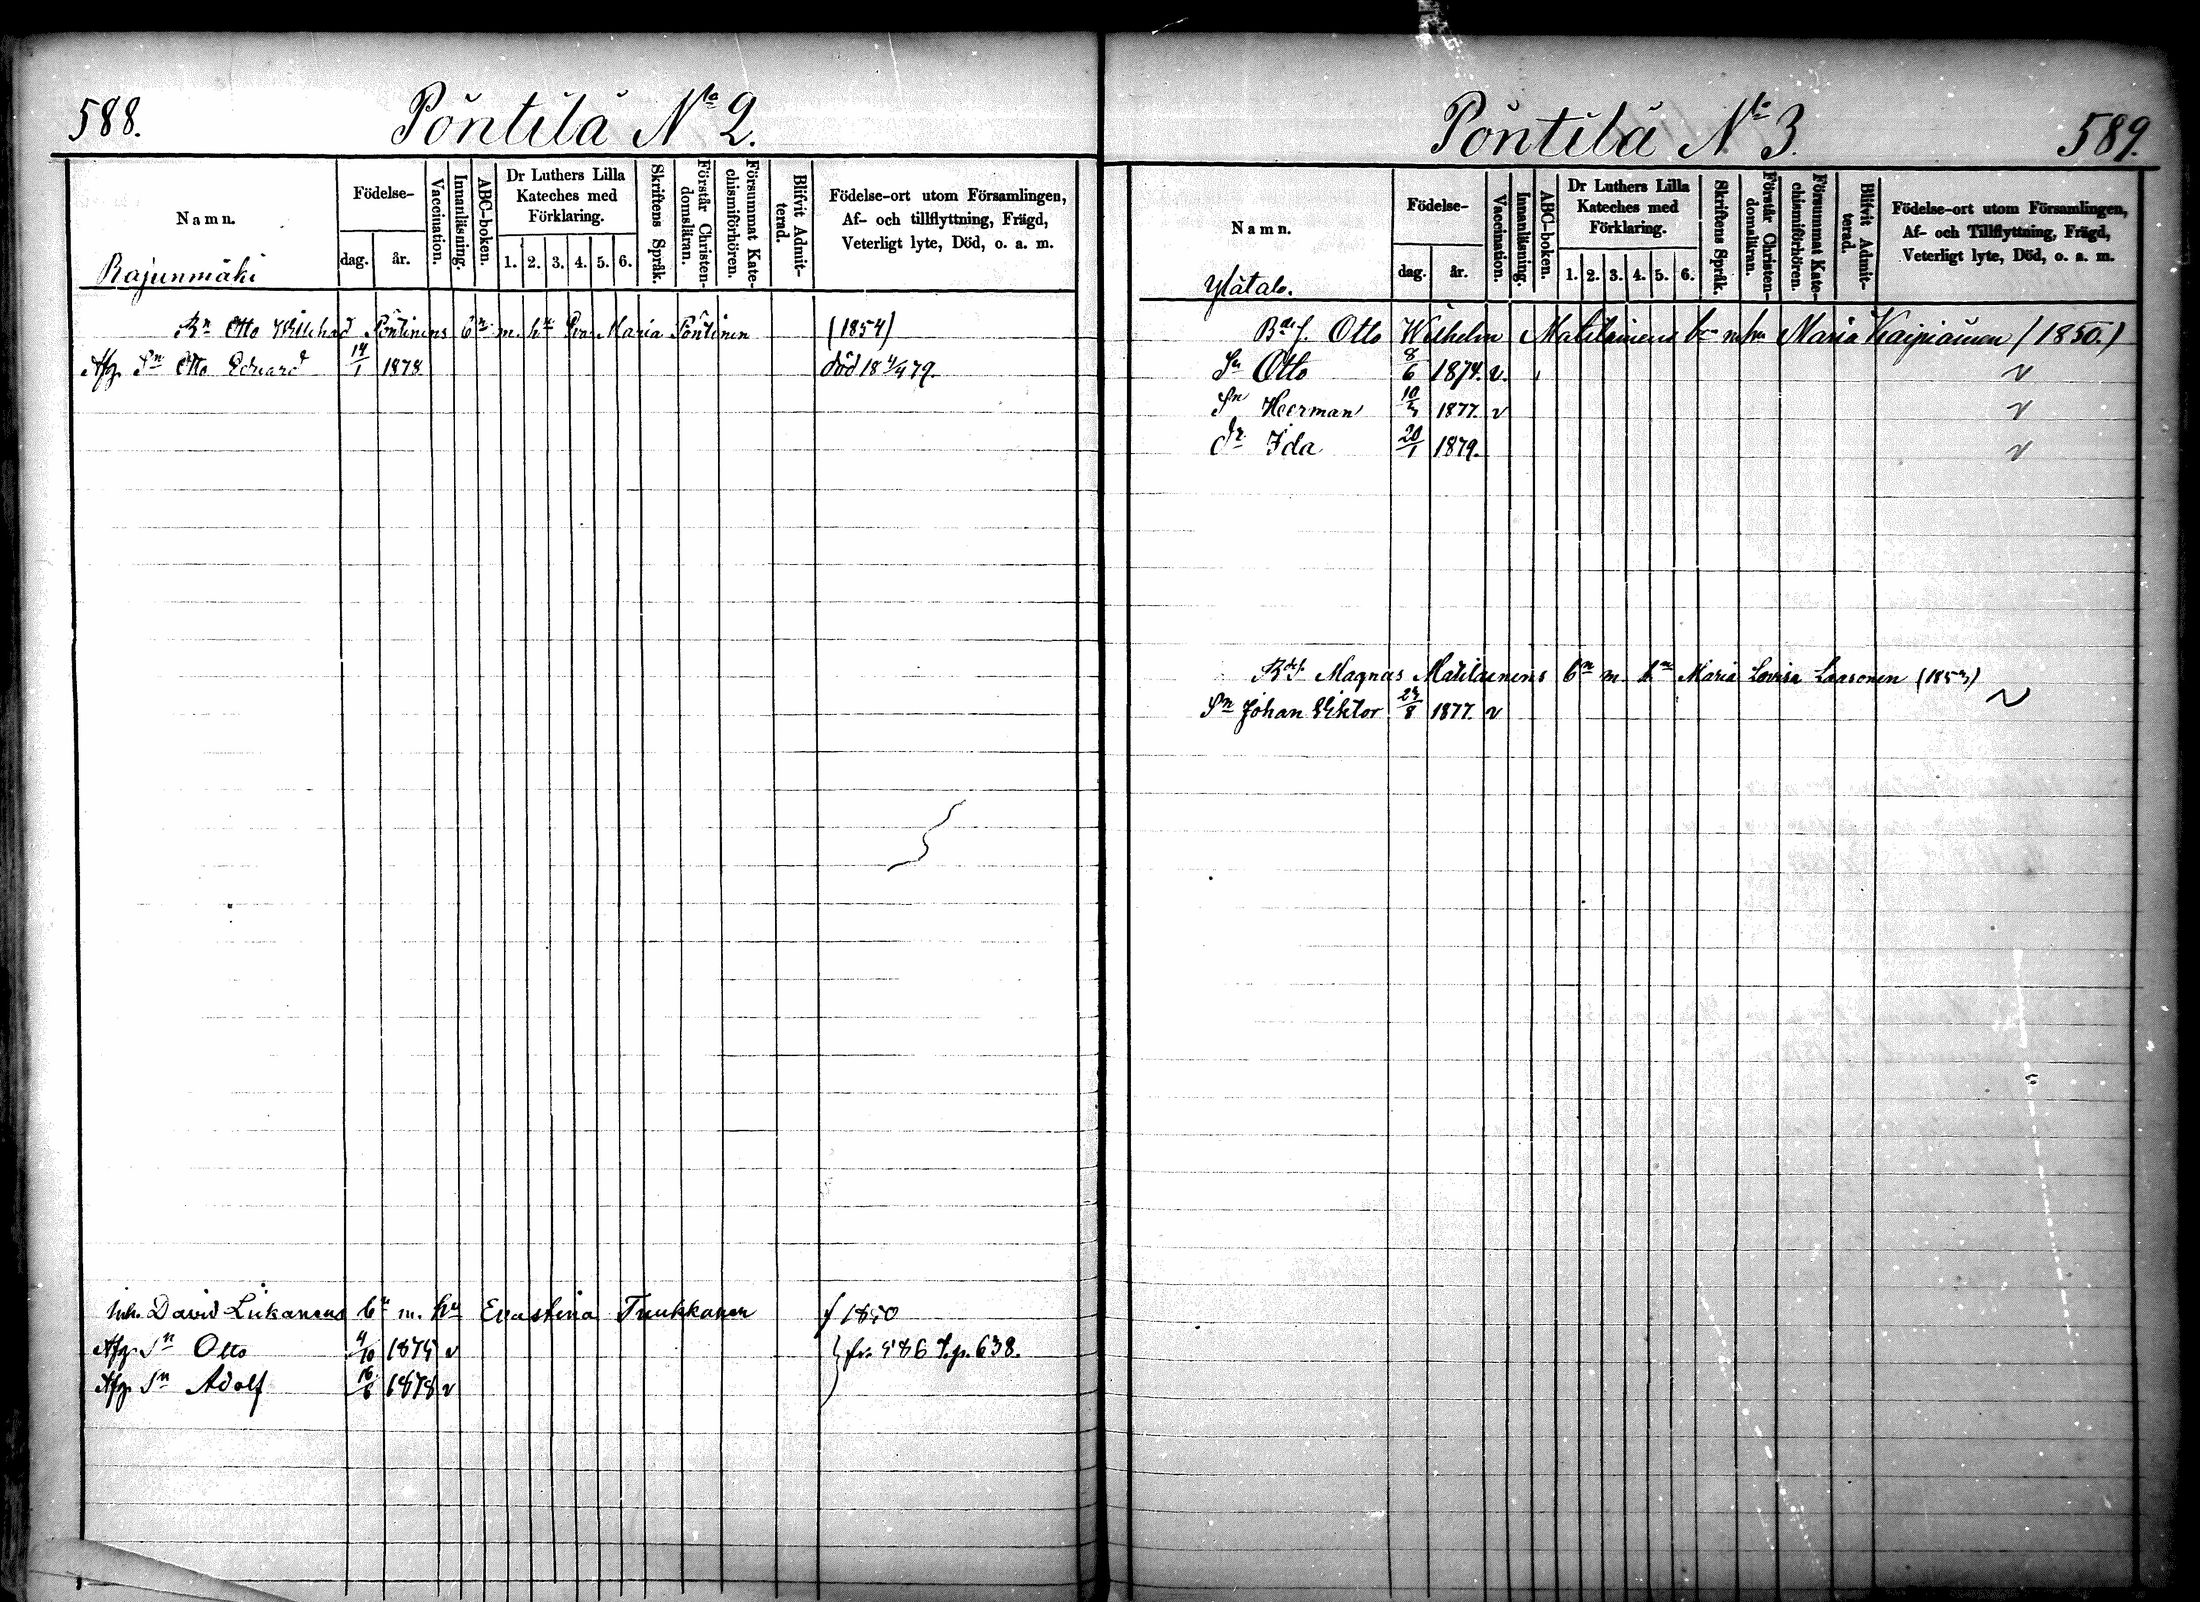 588.
Pöntilä No 2.
Namn.
Rajunmäki
Födelse-
dag.
år.
Vaccination.
Innanläsning.
ABC-boken.
Dr Luthers Lilla
Kateches med
Förklaring.
1. 2. 3. 4. 5. 6.
Skriftens Språk.
Förstår Christen-
domsläran.
Försummat Kate-
chismiförhören.
Blifvit Admit-
terad.
Födelse-ort utom Församlingen,
Af- och tillflyttning, Frägd,
Veterligt lyte, Död, o. a. m.
Bn Otto Pöntinens bn m. hn Maria Pöntinen (1854)
Afg. Sn Otto Eduard 14/1 1878 död 18 4/4 79.
Inh. David Liikanens bn m. hn Evastina Tuukkanen (1850
Afg. Sn Otto 4/10 1875 v fr. 586 t.p. 638.
Afg. Sn Adolf 16/6 1878 v
Pöntilä No 3.
589.
Namn.
Ylätalo.
Födelse-
dag.
år.
Vaccination.
Innanläsning.
ABC-boken.
Dr Luthers Lilla
Kateches med
Förklaring.
1. 2. 3. 4. 5. 6.
Skriftens Språk.
Förstår Christen-
domsläran.
Försummat Kate-
chismiförhören.
Blifvit Admit-
terad.
Födelse-ort utom Församlingen,
Af- och Tillflyttning, Frägd,
Veterligt lyte, Död, o. a. m.
Otto Wilhelm Matilainens bn m hu Maria Kaipiainen (1850.)
Sn Otto 8/6 1874. v. v
Sn Herman 1877. v v
Dr Ida 20/1 1879. v
Magnus Matilainens bn m. hn Maria Lovisa Laasonen (1853)
Sn Johan Viktor 1877. v